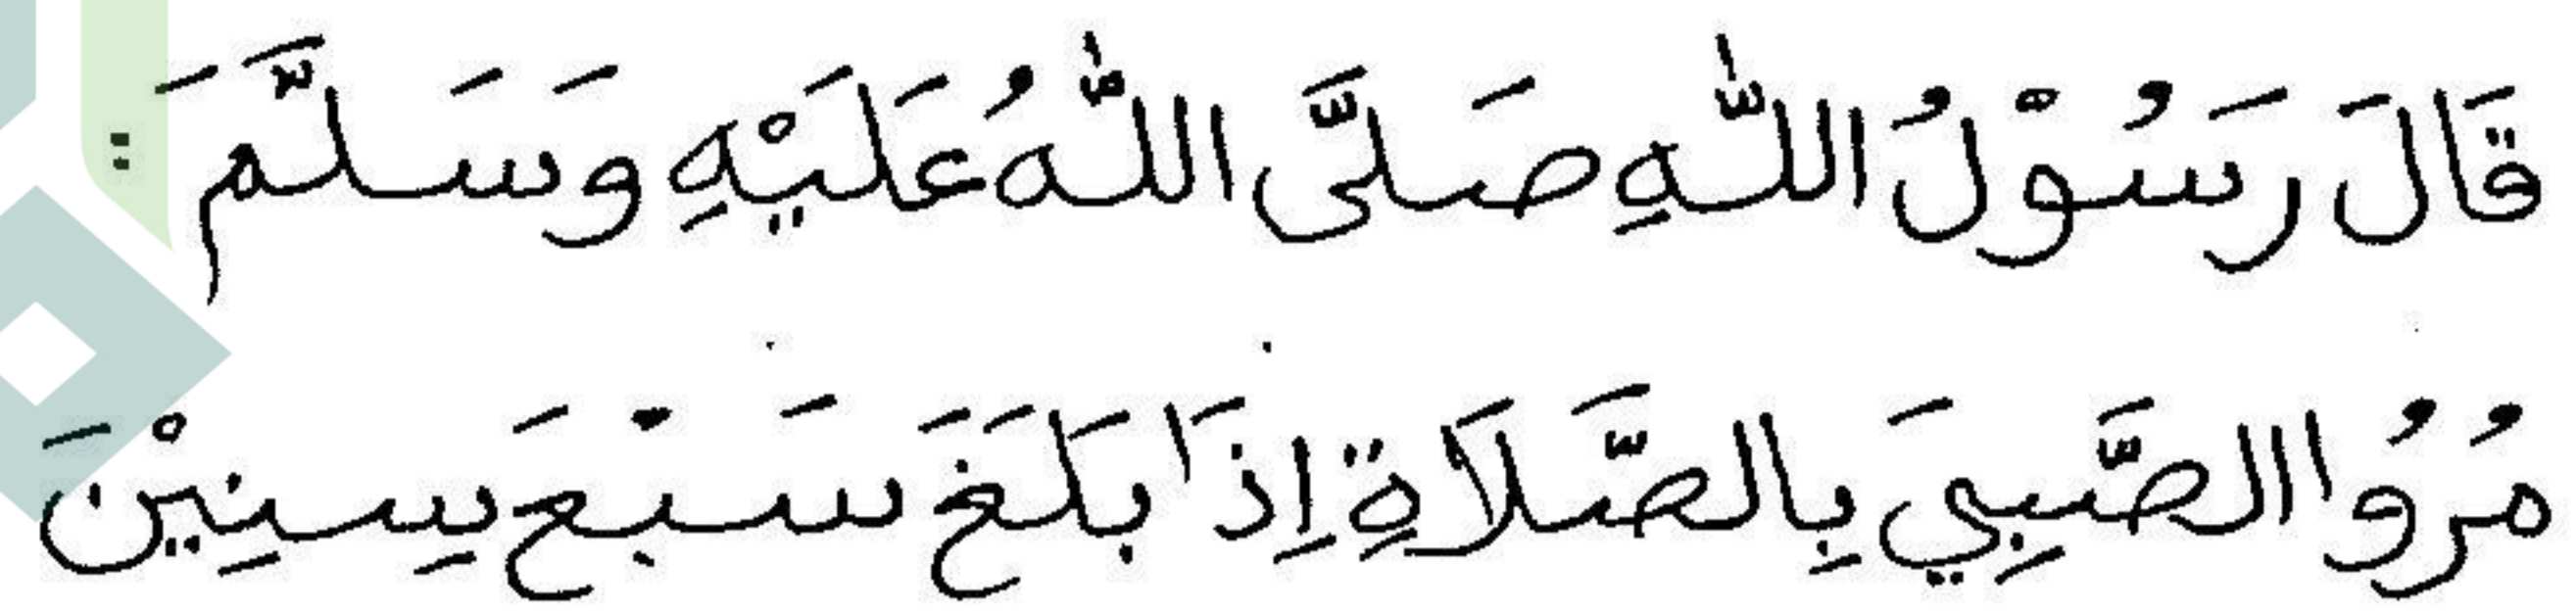 قَالَ رَسُوْلُ اللّٰهِ صَلَّى اللّٰهُ عَلَيْهِ وَسَلَّمَ :
مُرُوُا الصَّبِيَ بِالصَّلَاةِ اِذَا بَلَغَ سَبْعَ سِنِيْنَ